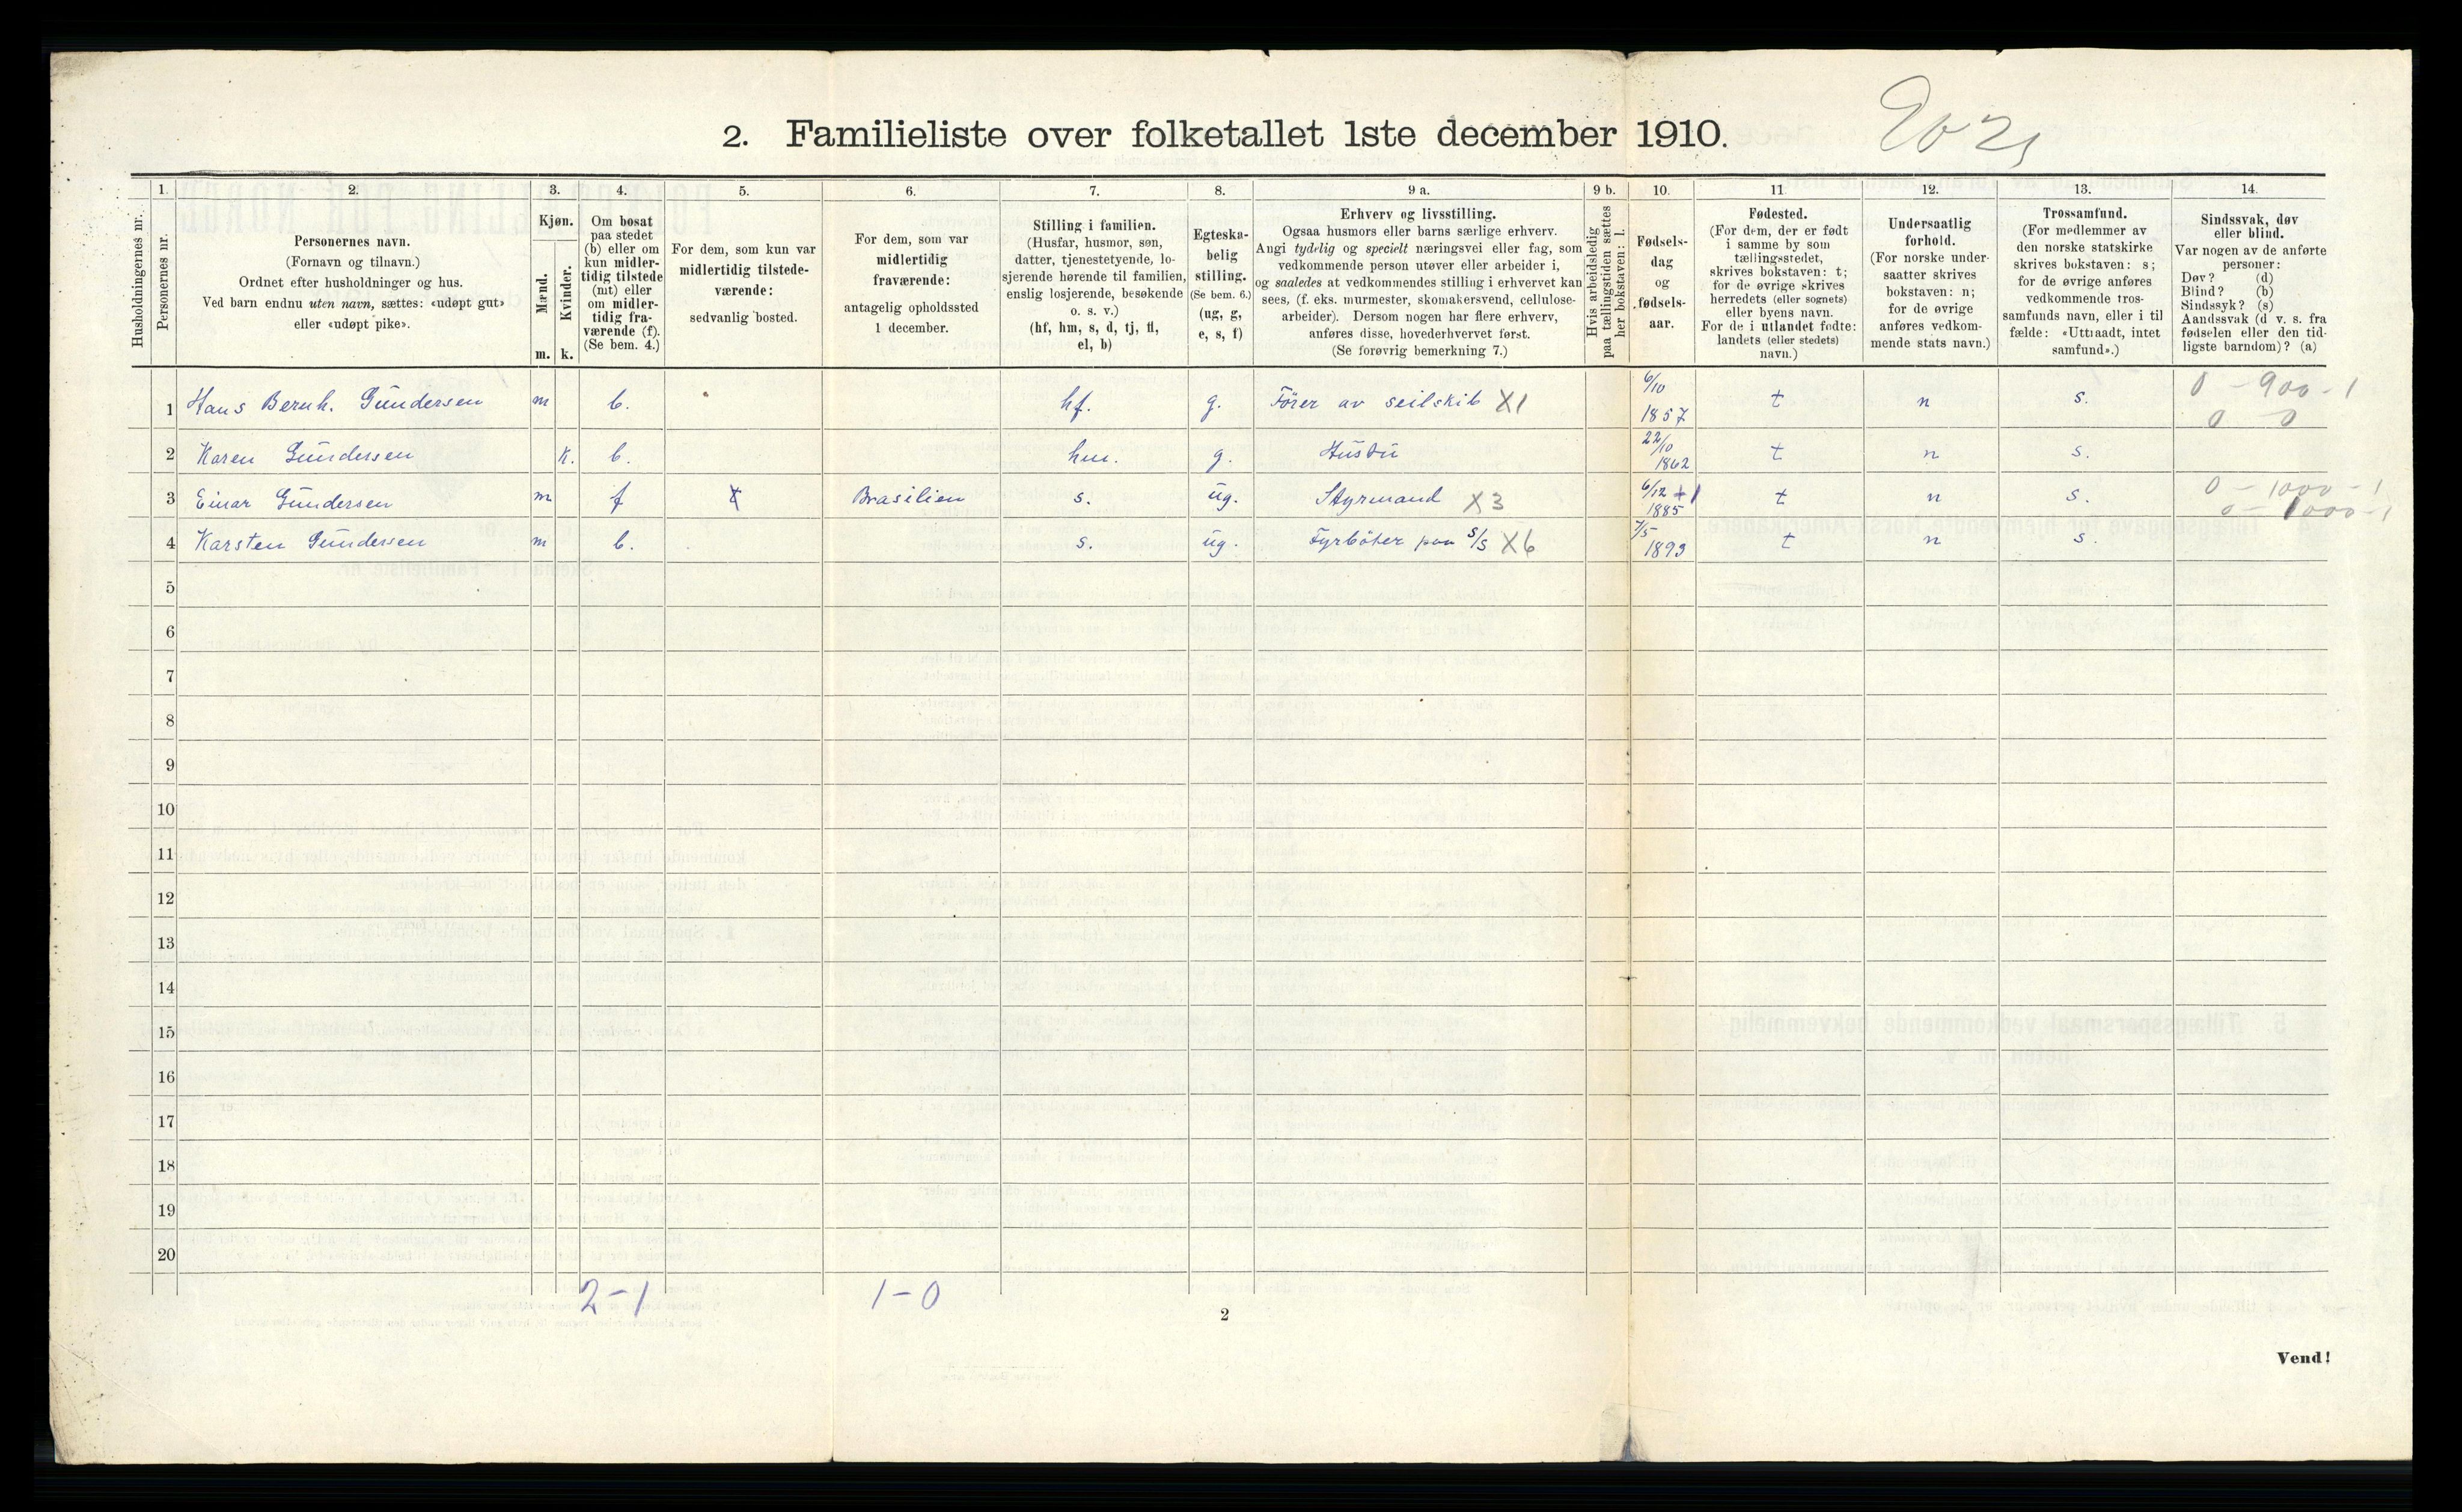 2. Familieliste over folketallet 1ste december 1910.
1. 2. 3. 4. 5. 6. 7. 8. 9 a. 9 b. 10. 11. 12. 13. 14.
Husholdningernes nr.
Personernes nr.
Personernes navn.
(Fornavn og tilnavn.)
Ordnet efter husholdninger og hus.
Ved barn endnu uten navn, sættes: «udøpt gut»
eller «udøpt pike».
Kjøn.
Mænd.
Kvinder.
m. k.
Om bosat
paa stedet
(b) eller om
kun midler-
tidig tilstede
(mt) eller
om midler-
tidig fra-
værende (f).
(Se bem. 4.)
For dem, som kun var
midlertidig tilstede-
værende:
sedvanlig bosted.
For dem, som var
midlertidig
fraværende:
antagelig opholdssted
1 december.
Stilling i familien.
(Husfar, husmor, søn,
datter, tjenestetyende, lo-
sjerende hørende til familien,
enslig losjerende, besøkende
o. s. v.)
(hf, hm, s, d, tj, fl,
el, b)
Egteska-
belig
stilling.
(Se bem. 6.)
(ug, g,
e, s, f)
Erhverv og livsstilling.
Ogsaa husmors eller barns særlige erhverv.
Angi tydelig og specielt næringsvei eller fag, som
vedkommende person utøver eller arbeider i,
og saaledes at vedkommendes stilling i erhvervet kan
sees, (f. eks. murmester, skomakersvend, cellulose-
arbeider). Dersom nogen har flere erhverv,
anføres disse, hovederhvervet først.
(Se forøvrig bemerkning 7.)
Hvis arbeidsledig
paa tællingstiden sættes
her bokstaven: l.
Fødsels-
dag
og
fødsels-
aar.
Fødested.
(For dem, der er født
i samme by som
tællingsstedet,
skrives bokstaven: t;
for de øvrige skrives
herredets (eller sognets)
eller byens navn.
For de i utlandet fødte:
landets (eller stedets)
navn.)
Undersaatlig
forhold.
(For norske under-
saatter skrives
bokstaven: n;
for de øvrige
anføres vedkom-
mende stats navn.)
Trossamfund.
(For medlemmer av
den norske statskirke
skrives bokstaven: s;
for de øvrige anføres
vedkommende tros-
samfunds navn, eller i til
fælde: «Uttraadt, intet
samfund».)
Sindssvak, døv
eller blind.
Var nogen av de anførte
personer:
Døv? (d)
Blind? (b)
Sindssyk? (s)
Aandssvak (d v. s. fra
fødselen eller den tid-
ligste barndom)? (a)
1 Hans Bernh. Gundersen m b. hf. g. Förer av seilskib X1 6/10 1857 t n s. 0 - 900 - 1
0 0
2 Karen Gundersen k. b. hm. g. Hustru 22/10 1862 t n s.
3 Einar Gundersen m f Brasilien s. ug. Styrmand X3 6/12 1885 t n s. 0 - 1000 - 1
0 - 1000 - 1
4 Karsten Gundersen m b. s. ug. Fyrböter paa S/S X6 7/5 1893 t n s.
5
6
7
8
9
10
11
12
13
14
15
16
17
18
19
20
2-1 1-0
2
Vend!